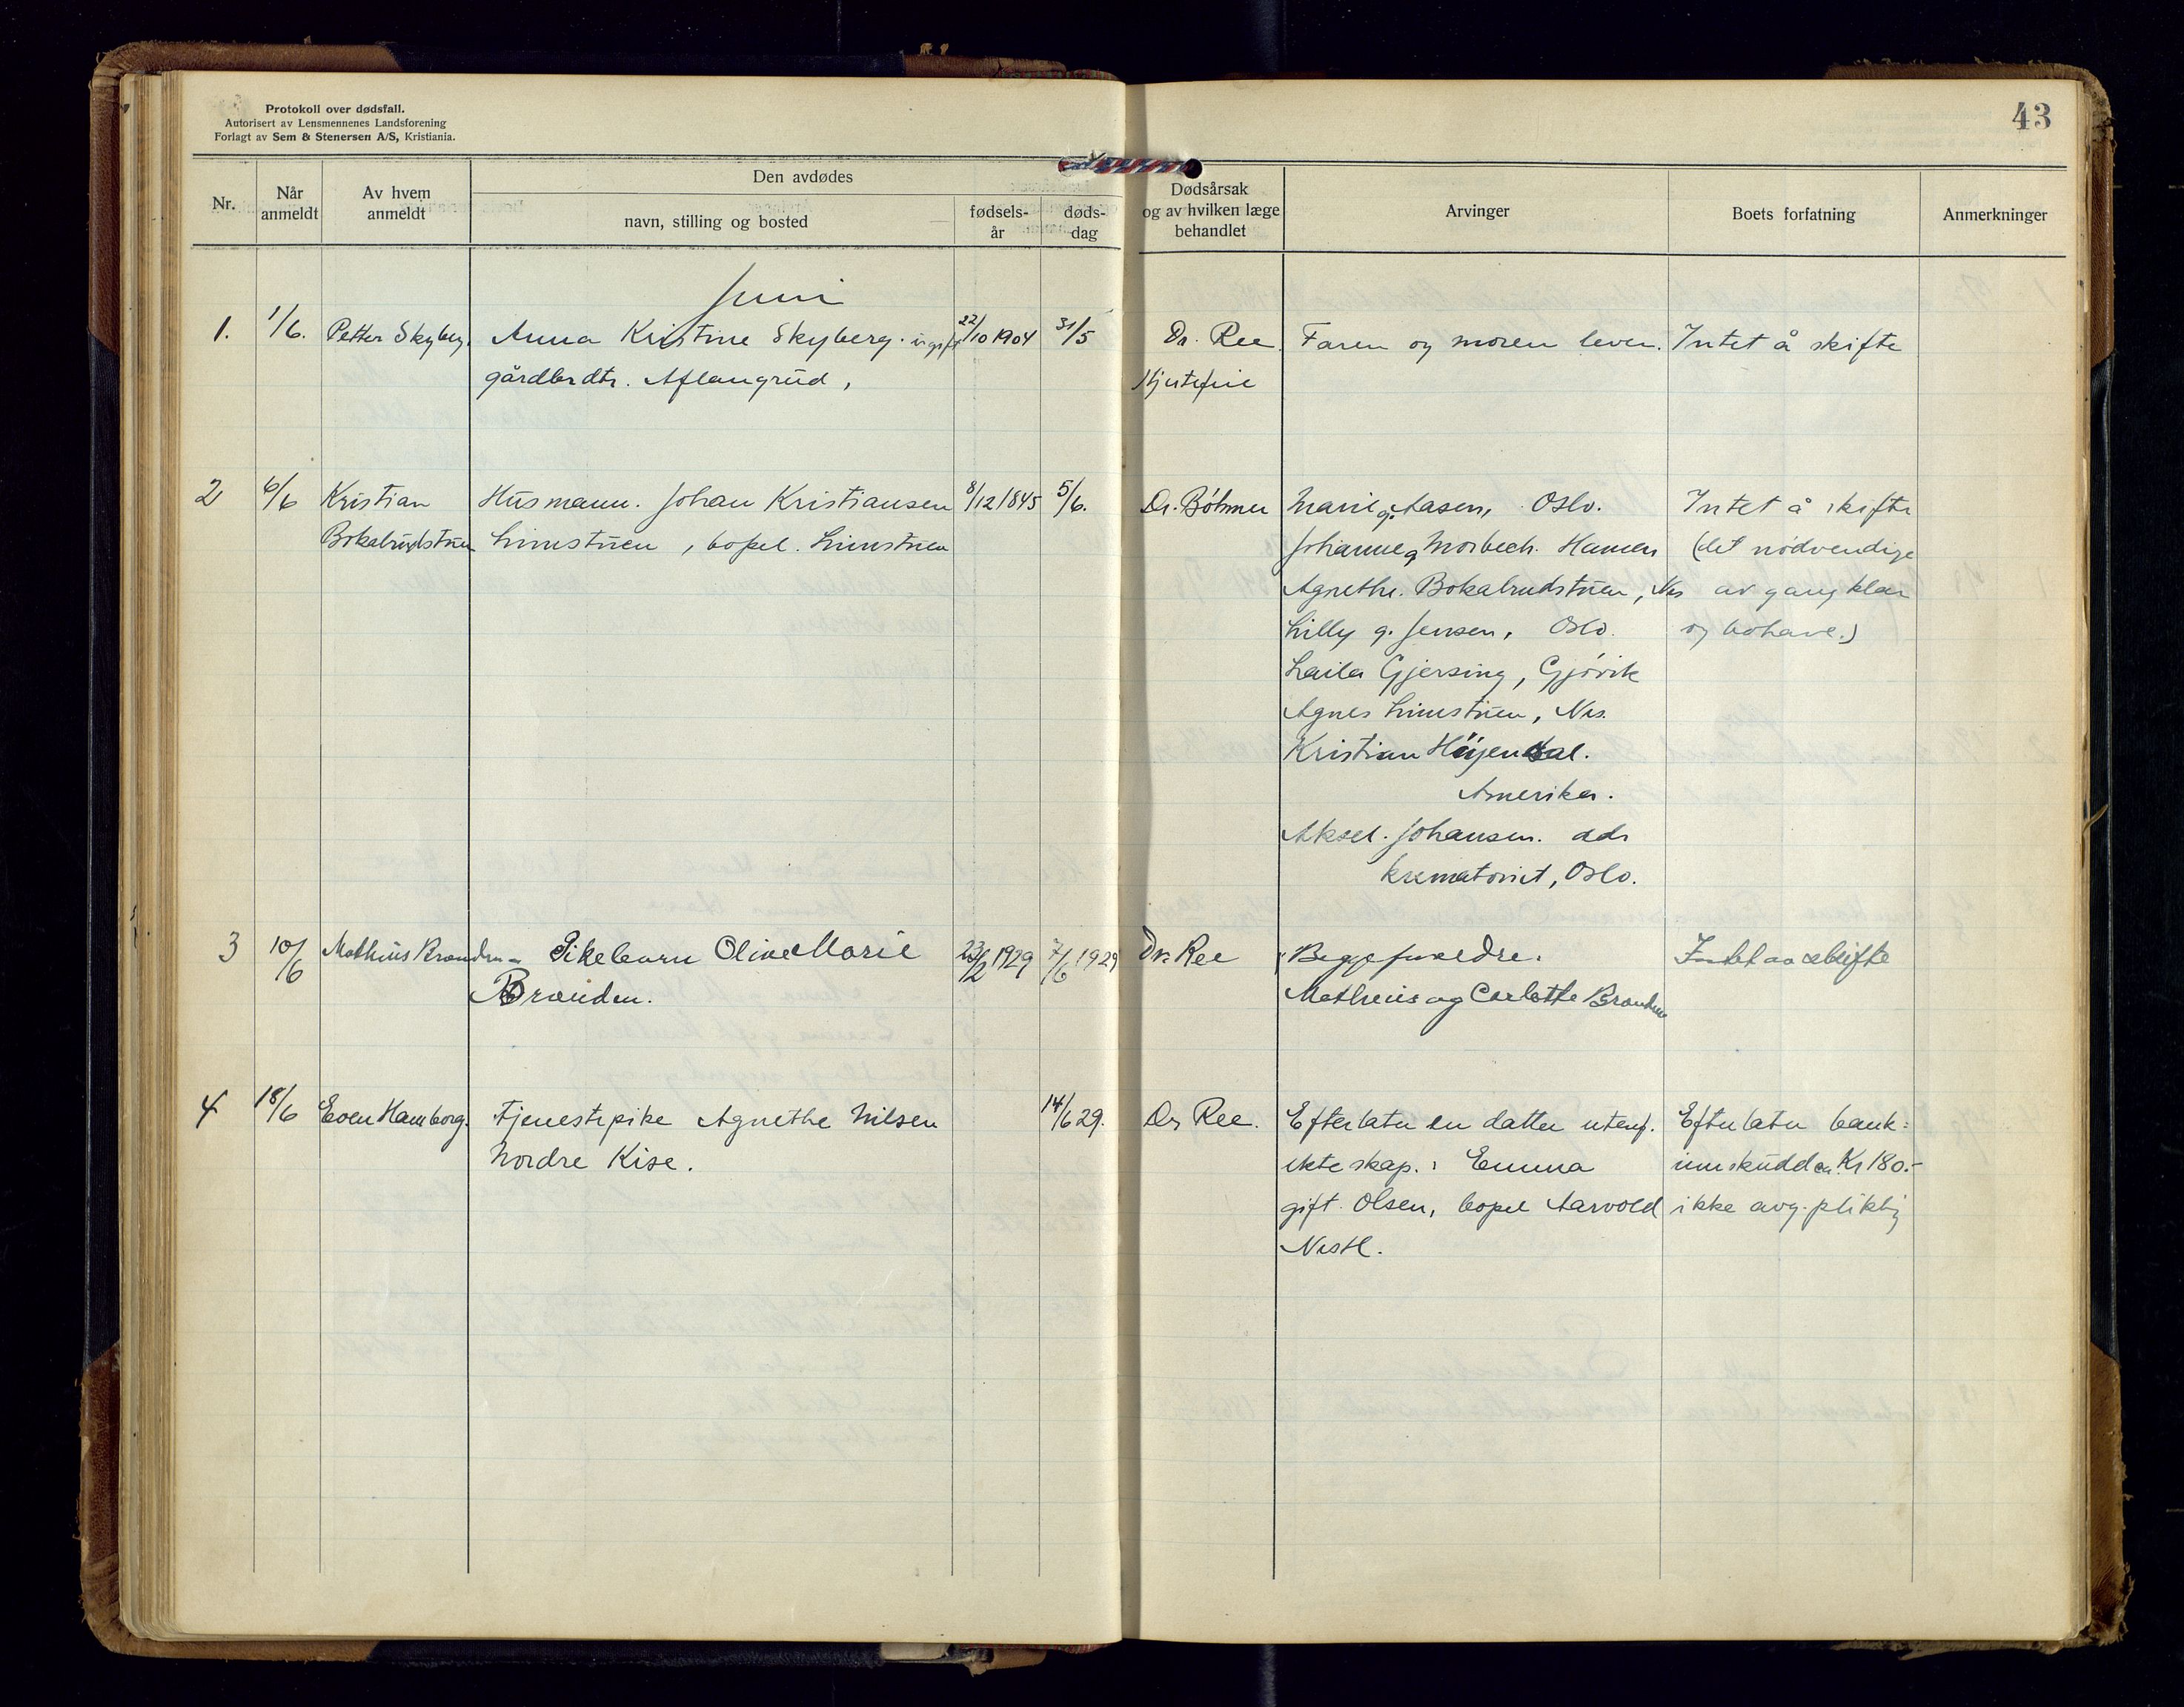 Protokoll over dødsfall.
Autorisert av Lensmennenes Landsforening
Forlagt av Sem & Stenersen A/S, Kristiania.
43
Nr.
Når anmeldt
Av hvem anmeldt
Den avdødes
navn, stilling og bosted
fødsels-år
døds-dag
Dødsårsak og av hvilken læge behandlet
Arvinger
Boets forfatning
Anmerkninger
Juni
1. 1/6. Petter Skyberg. Anna Kristine Skyberg. ugift 22/10 1904 31/5 Dr. Ree Faren og moren lever. Intet å skifte
gårdbrdtr. Aflangrud,
2 6/6 Kristian Husmann. Johan Kristiansen 8/12 1845 5/6. Dr. Böhmer Marie g. Aasen, Oslo. Intet å skifte
Bokalrudstuen Linstuen, bopel. Linstuen Johanne g. Morbech. Hamar (det nödvendige
Agnethe. Bokalrudstuen, Nes av gangklær
Lilly g. Jensen, Oslo. og bohave.)
Laila Gjersing, Gjövik
Agnes Linstuen, Nes.
Kristian
Amerika.
Aksel. Johansen. adr
krematoriet, Oslo.
3 10/6 Mathius Branden Pikebarn Oline Marie 1929 7/6 1929 Dr. Ree Begge foreldre. Intet aa skifte
Branden. Mathius og Carlotte Branden
4 18/6 Even Hamborg. Tjenestepike Agnethe Nilsen 14/6 29. Dr Ree. Efterlater en datter utenf. Efterlater bank-
Nordre Kise. ekteskap.: Emma innskudd ca. Kr 180.-
gift. Olsen, bopel Aarvold ikke avg. pliktig
Nesh.